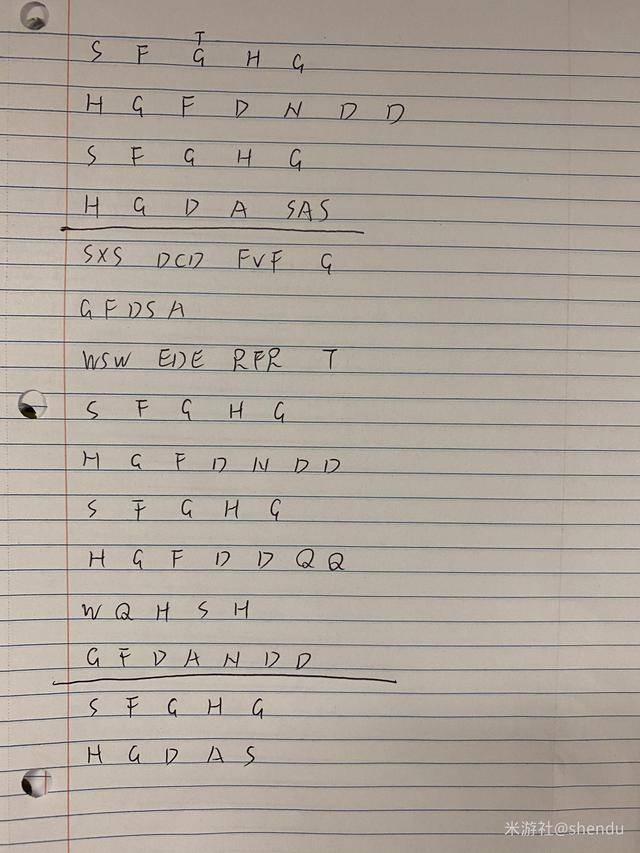 T
S F G H G
H G F D N D D
S F G H G
H G D A SAS
SXS DCD FVF G
G F D S A
WSW EDE RFR T
S F G H G
H G F D N D D
S F G H G
H G F D D Q Q
W Q H S H
G F D A N D D
S F G H G
H G D A S
米游社@shendu